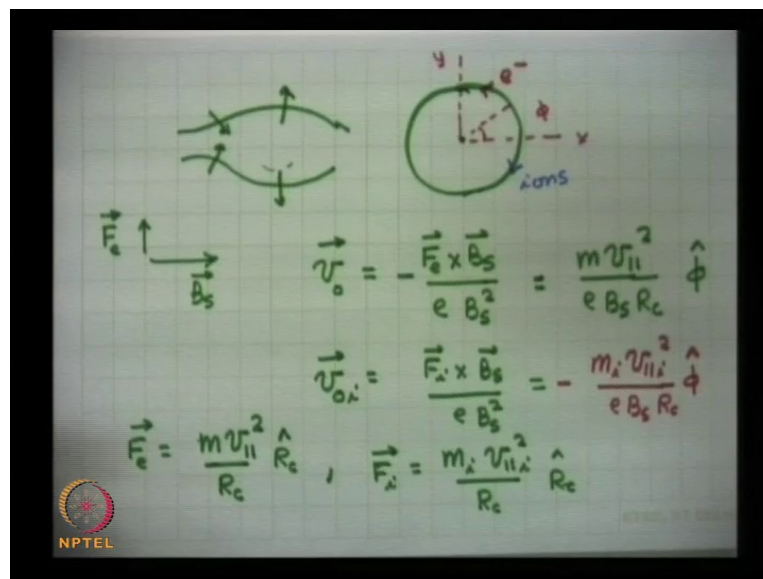 y
e⁻
φ
x
ions
F⃗e
B⃗s
v⃗₀ = - F⃗e × B⃗s / e Bs² = m v∥² / e Bs Rc φ̂
v⃗₀i = F⃗i × B⃗s / e Bs² = - mi v∥i² / e Bs Rc φ̂
F⃗e = m v∥² / Rc R̂c , F⃗i = mi v∥i² / Rc R̂c
NPTEL